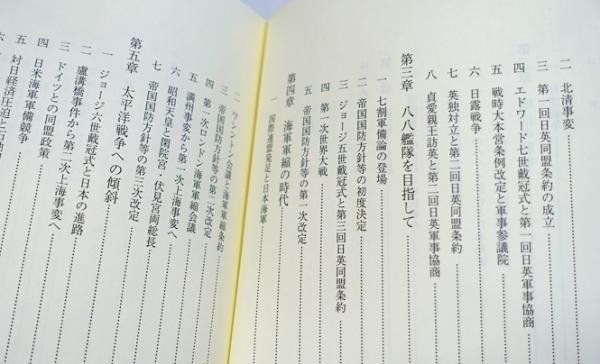 二 北清事変
三 第一回日英同盟条約の成立
四 エドワード七世戴冠式と第一回日英軍事協商
五 戦時大本営条例改定と軍事参議院
六 日露戦争
七 英独対立と第二回日英同盟条約
八 貞愛親王訪英と第二回日英軍事協商
第三章 八八艦隊を目指して
一 七割軍備論の登場
二 帝国国防方針等の初度決定
三 ジョージ五世戴冠式と第三回日英同盟条約
四 第一次世界大戦
五 帝国国防方針等の第一次改定
第四章 海軍軍縮の時代
一 国際連盟発足と日本海軍
二 ワシントン会議と海軍軍縮条約
三 帝国国防方針等の第二次改定
四 第一次ロンドン海軍軍縮会議
五 満州事変から第一次上海事変へ
六 昭和天皇と閑院宮・伏見宮両総長
七 帝国国防方針等の第三次改定
第五章 太平洋戦争への傾斜
一 ジョージ六世戴冠式と日本の進路
二 盧溝橋事件から第二次上海事変へ
三 ドイツとの同盟政策
四 日米海軍軍備競争
五 対日経済圧迫と
六